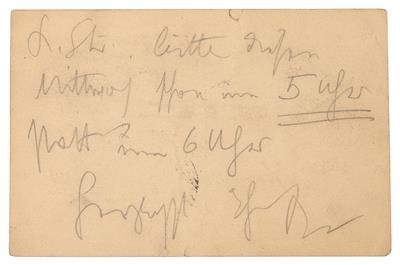 L. Str., bitte diesen
Mittwoch schon um 5 Uhr
statt um 6 Uhr
Herzlichst